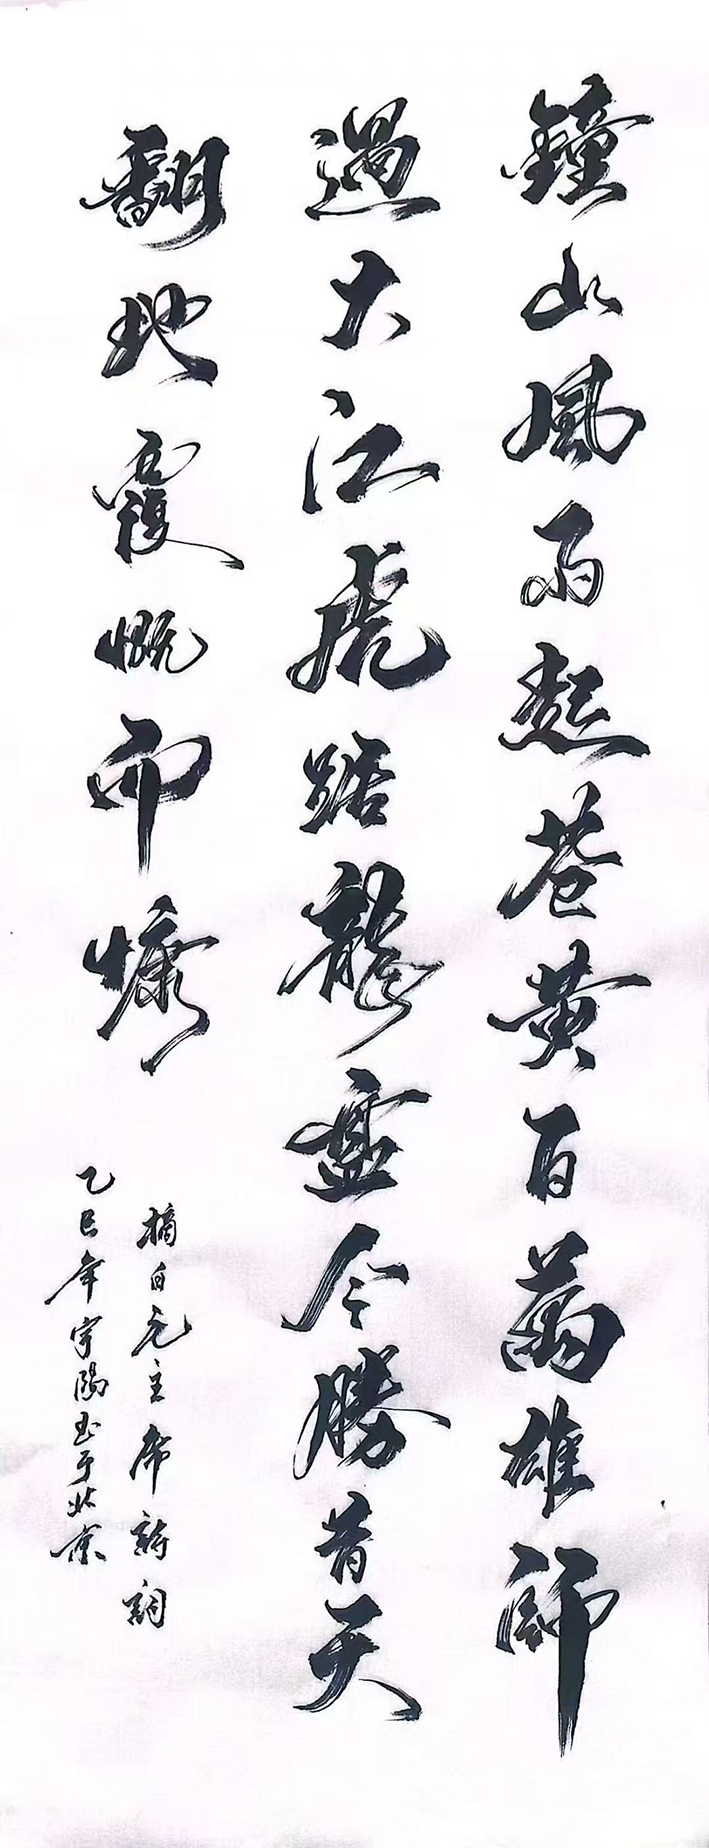 鐘山風雨起蒼黄百萬雄師
過大江虎踞龍盤今勝昔天
翻地覆慨而慷
摘自毛主席詩詞
乙巳年宇陽书于北京